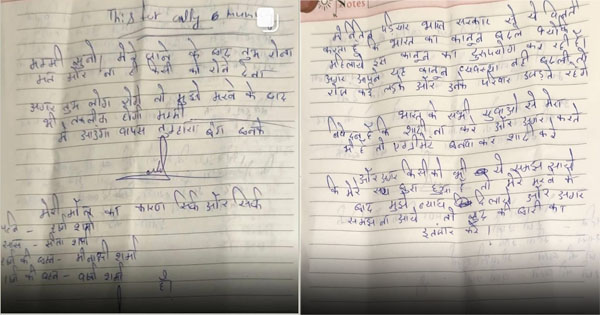 This is my
मम्मी सुनो। मेरे जाने के बाद तुम रोना
मत और ना ही किसी को रोने देना
अगर तुम लोग रोगी तो मुझे मरने के बाद
भी तकलीफ होगी मम्मी
मैं आउंगा वापस तुम्हारा बनके
मेरी मौत का कारण सिर्फ और सिर्फ
शर्मा
शर्मा
की शर्मा
की शर्मा
है।
Notes
मैं नितिन पडियार भारत सरकार से ये विनती
करता हूँ कि भारत का कानून बदले क्योंकि
महिलाये इस कानून का दुरुपयोग कर रही हैं।
अगर आपने यह कानून व्यवस्था नहीं बदली तो
रोज कई लड़के और उनके परिवार उजड़ते रहेंगे
भारत के सभी युवाओं से मेरा
निवेदन हैं कि शादी ना करे और अगर करते
भी है तो एग्रीमेंट बनवा कर शादी करे
और अगर किसी को भी ये समझ आये
कि मेरे साथ बुरा हुआ है तो मेरे मरने के
बाद मुझे न्याय दिलाये और अगर
समझ ना आये तो खुद की बारी का
इंतजार करे।